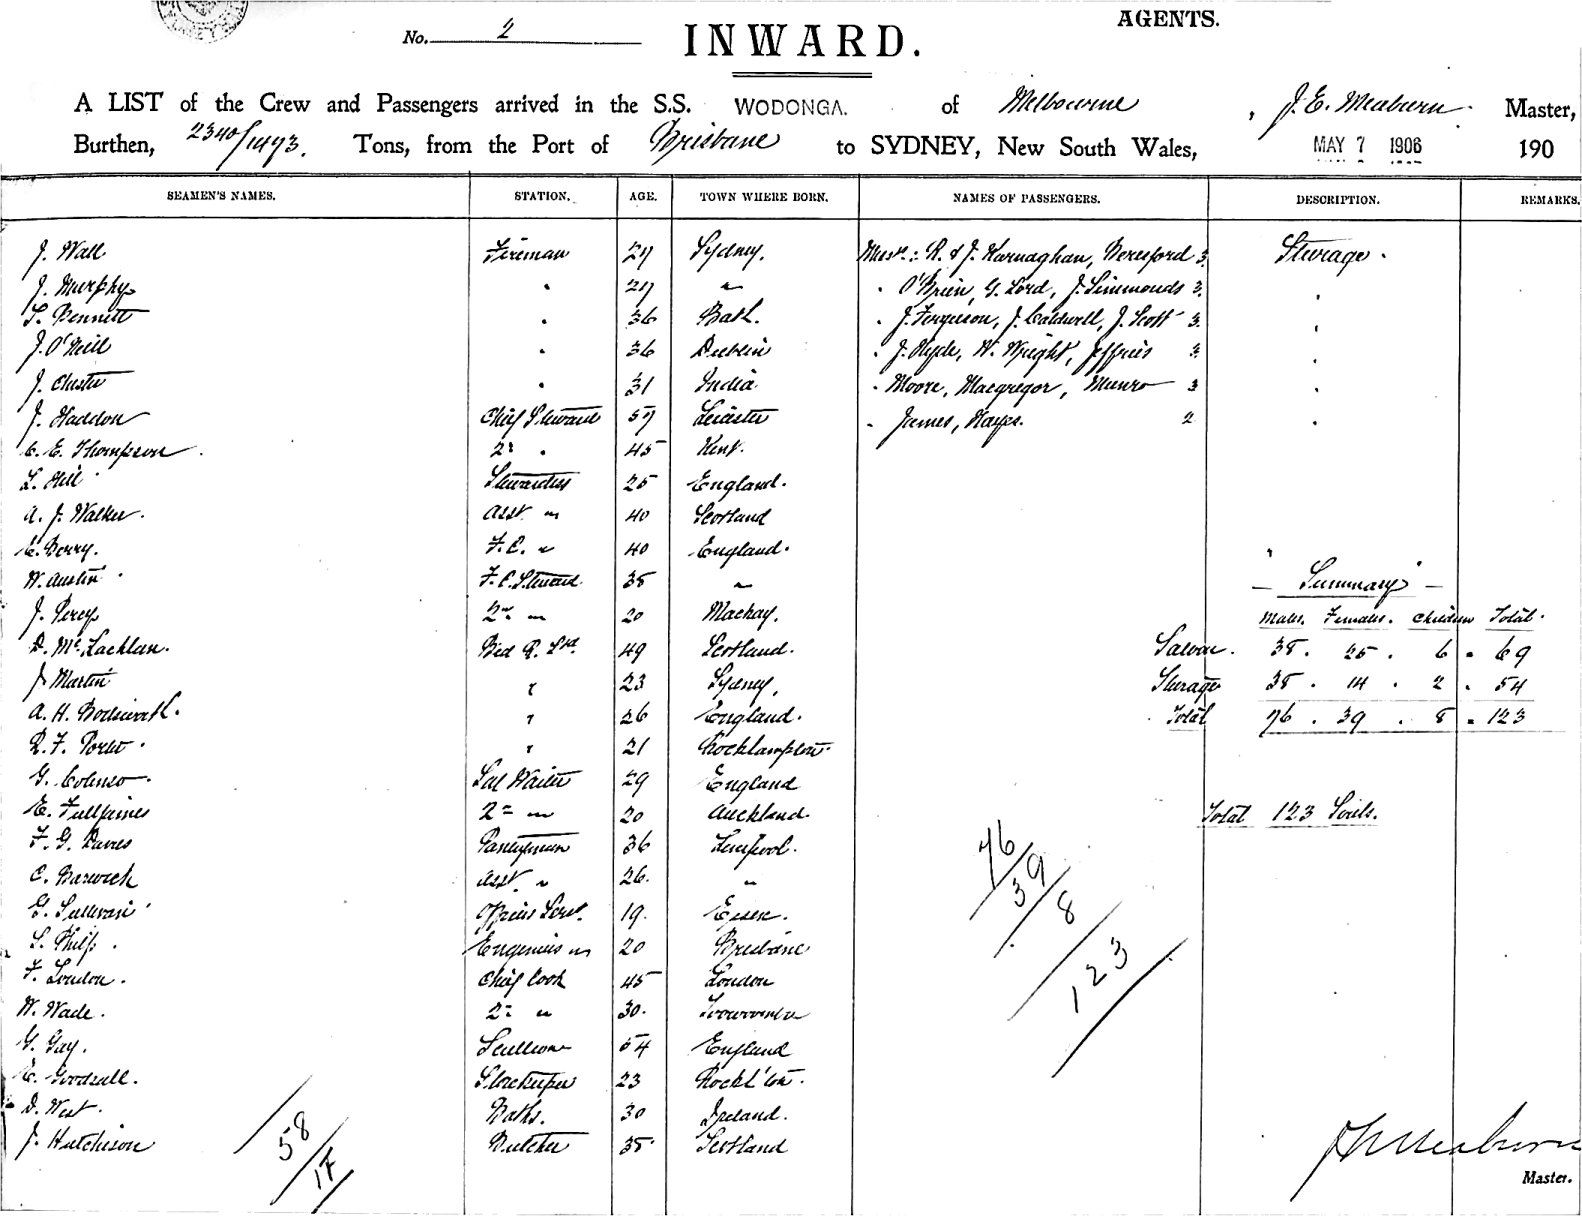 AGENTS.
No. 2
INWARD.
A LIST of the Crew and Passengers arrived in the S.S. WODONGA. of Melbourne, J. E. Meaburn Master,
Burthen, 2340/1493. Tons, from the Port of Brisbane to SYDNEY, New South Wales, MAY 7 1906 190
SEAMEN'S NAMES. STATION. AGE. TOWN WHERE BORN. NAMES OF PASSENGERS. DESCRIPTION. REMARKS.
J. Wall Fireman 27 Sydney. Messrs: R. & J. Karnaghan, Beresford 3 Steerage.
J. Murphy " 27 " " O'Brien, G. Lord, J. Simmonds 3. "
S. Bennett " 36 Bath. " J. Ferguson, J. Caldwell, J. Scott 3 "
J. O'Neill " 36 Dublin " J. Clyde, W. Wright, Jeffries 3 "
J. Chester " 31 India " Moore, Macgregor, Munro 3 "
J. Haddon Chief Steward 57 Leicester " James, Hayes. 2 "
C. E. Thompson. 2nd " 45 Kent.
L. Hill Stewardess 25 England.
A. J. Walker. Asst " 40 Scotland
E. Berry. F.C. " 40 England.
W. Austin F.C. Steward 35 "
— Summary —
J. Percy 2nd " 20 Mackay.
Males. Females. Children Total.
D. McLachlan. Bed R. Std. 49 Scotland.
Saloon. 38. 25. 6. 69
J Martin " 23 Sydney.
Steerage 38. 14. 2. 54
A. H. Bodsworth. " 26 England.
Total 76. 39. 8. 123
R. F. Porter. " 21 Rockhampton.
G. Colenso. Sal Waiter 29 England
E. Fulljames 2nd " 20 Auckland.
Total 123 Souls.
F. G. Davies Pantryman 36 Liverpool.
C. Barwick Asst. " 26. "
G. Sullivan Officers Servt. 19. Essex.
S. Philp. Engineers " 20 Brisbane
F. London. Chief Cook 45 London
W. Wade. 2nd " 30. Toowoomba
G. Gay. Scullion 54 England
E. Goodsall. Storekeeper 23 Rockt'on.
D. West. Baths. 30 Ireland.
J. Hutchison Butcher 35. Scotland
76/
39/
8/
123/
58/
1F/
J E Meaburn
Master.